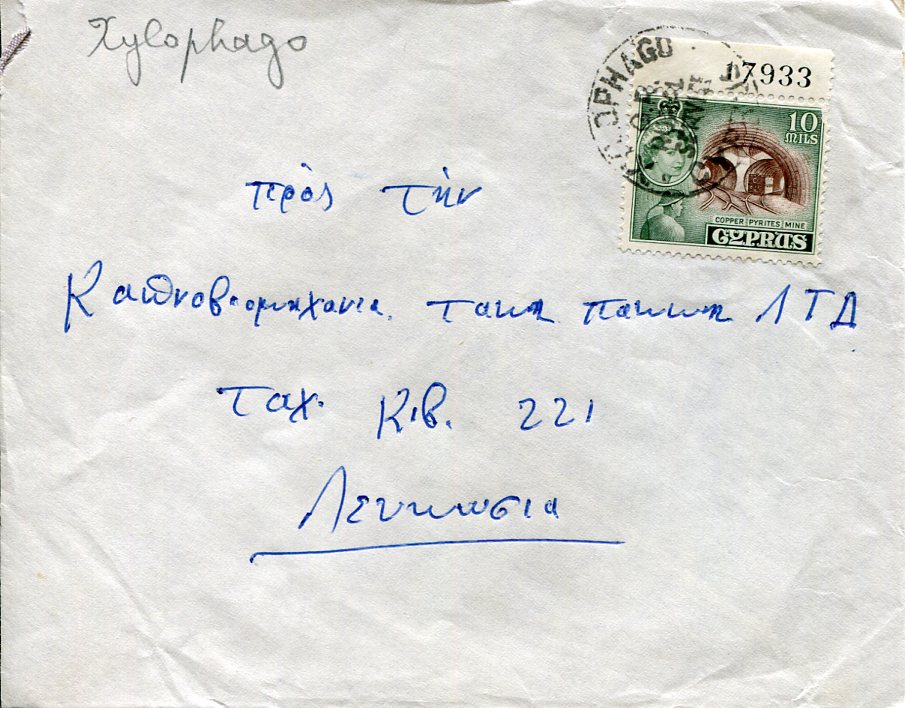 Xylophago
17933
10
MILS
COPPER PYRITES MINE
CYPRUS
πρὸς τὴν
Καπνοβιομηχανια. Τακη Πακκη ΛΤΔ
Ταχ. Κιβ. 221
Λευκωσια